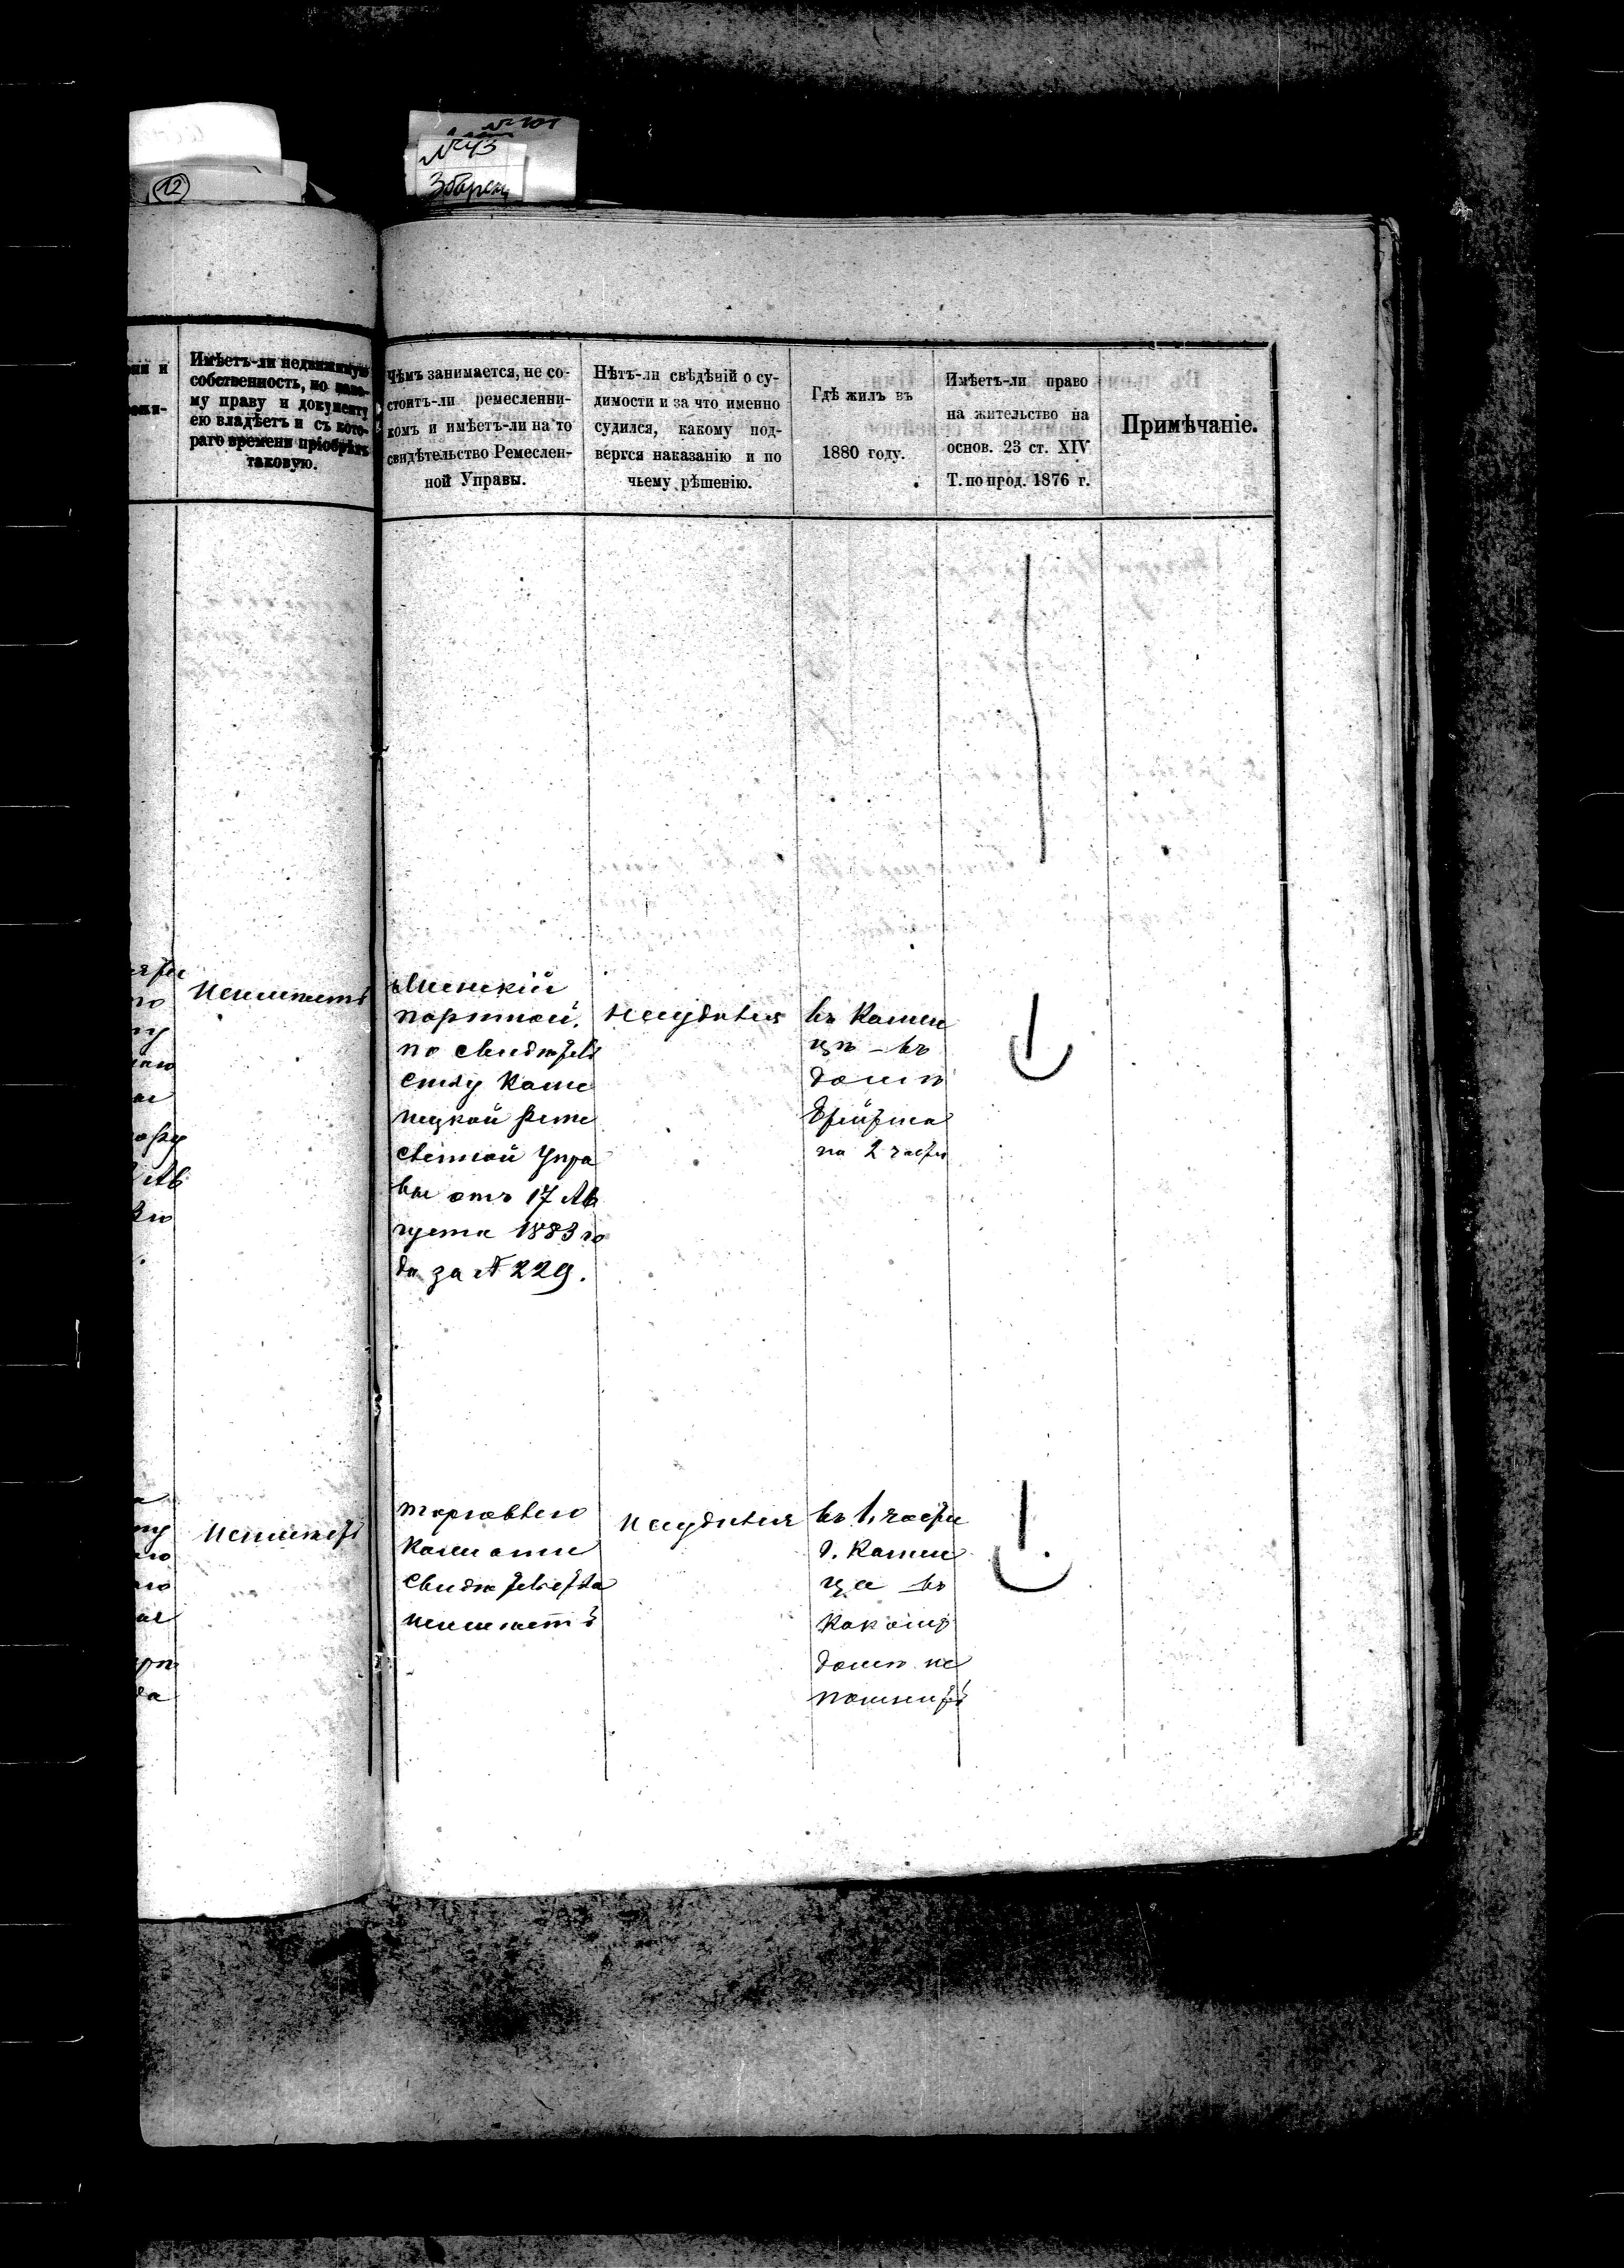 № 101
№ 43
Збареж
12
Имѣетъ-ли недвижимую
собственность, по како-
му праву и документу
ею владѣетъ и съ кото-
раго времени пріобрѣлъ
таковую.
Чѣмъ занимается, не со-
стоитъ-ли ремесленни-
комъ и имѣетъ-ли на то
свидѣтельство Ремеслен-
ной Управы.
Нѣтъ-ли свѣдѣній о су-
димости и за что именно
судился, какому под-
вергся наказанію и по
чьему рѣшенію.
Гдѣ жилъ въ
1880 году.
Имѣетъ-ли право
на жительство на
основ. 23 ст. XIV
Т. по прод. 1876 г.
Примѣчаніе.
неимѣетъ
портной.
по свидѣтель
ству Каме
нецкой Реме
сленной Упра
вы отъ 17 Ав
густа 1883 го
да за № 229.
несудился
въ Каме
цѣ - въ
домѣ
на 2 части
неимѣетъ
торговлею
свидѣтельства
неимѣетъ
несудился
въ 1. части
г. Камен
ца въ
какомъ
домѣ не
помнитъ